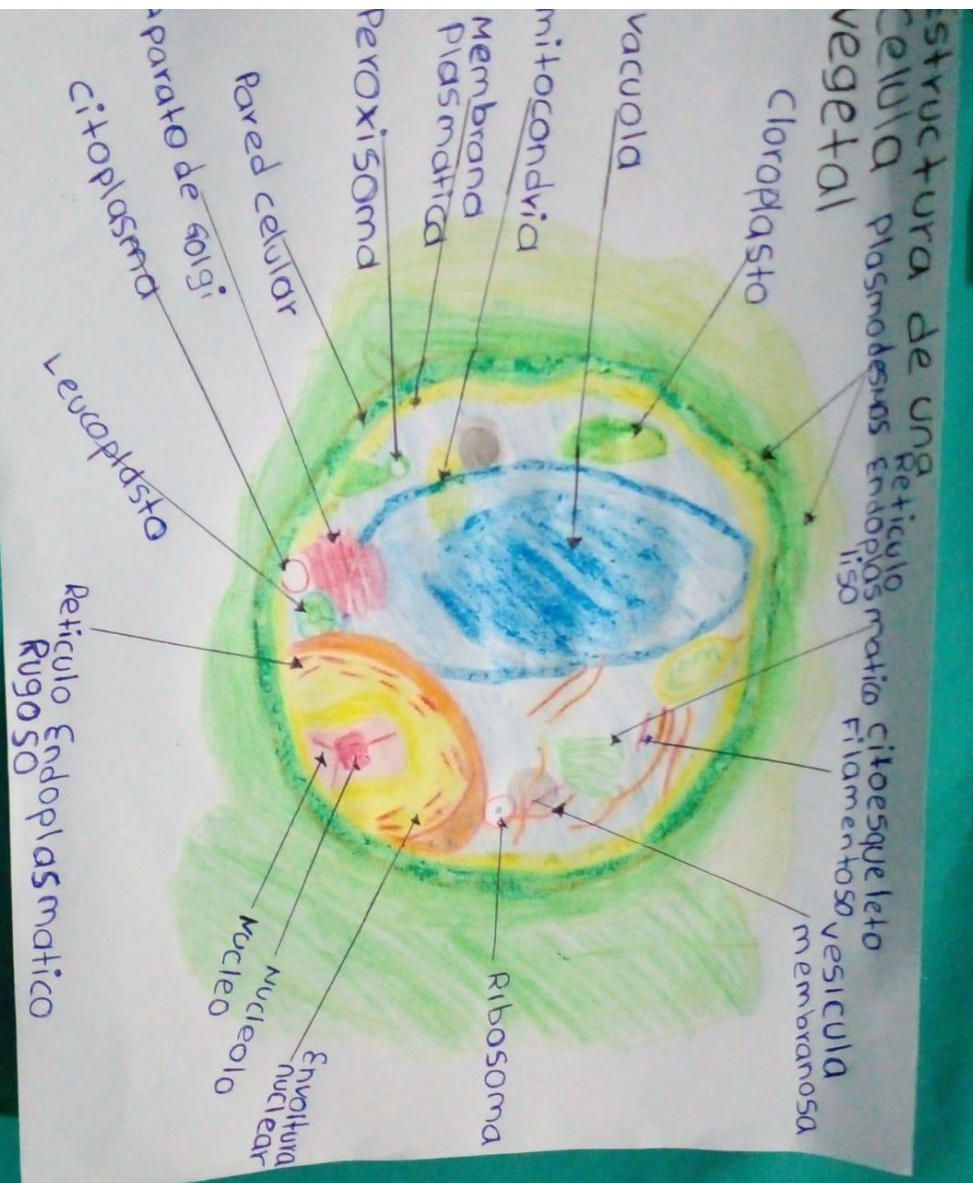 Estructura de una
Celula
vegetal
Plasmodesmos
Reticulo
Endoplasmatico
liso
citoesqueleto
Filamentoso
vesicula
membranosa
Cloroplasto
vacuola
mitocondria
Membrana
Plasmatica
Peroxisoma
Pared celular
Aparato de Golgi
Citoplasma
Leucoplasto
Reticulo Endoplasmatico
Rugoso
Nucleo
Nucleolo
Envoltura
nuclear
Ribosoma